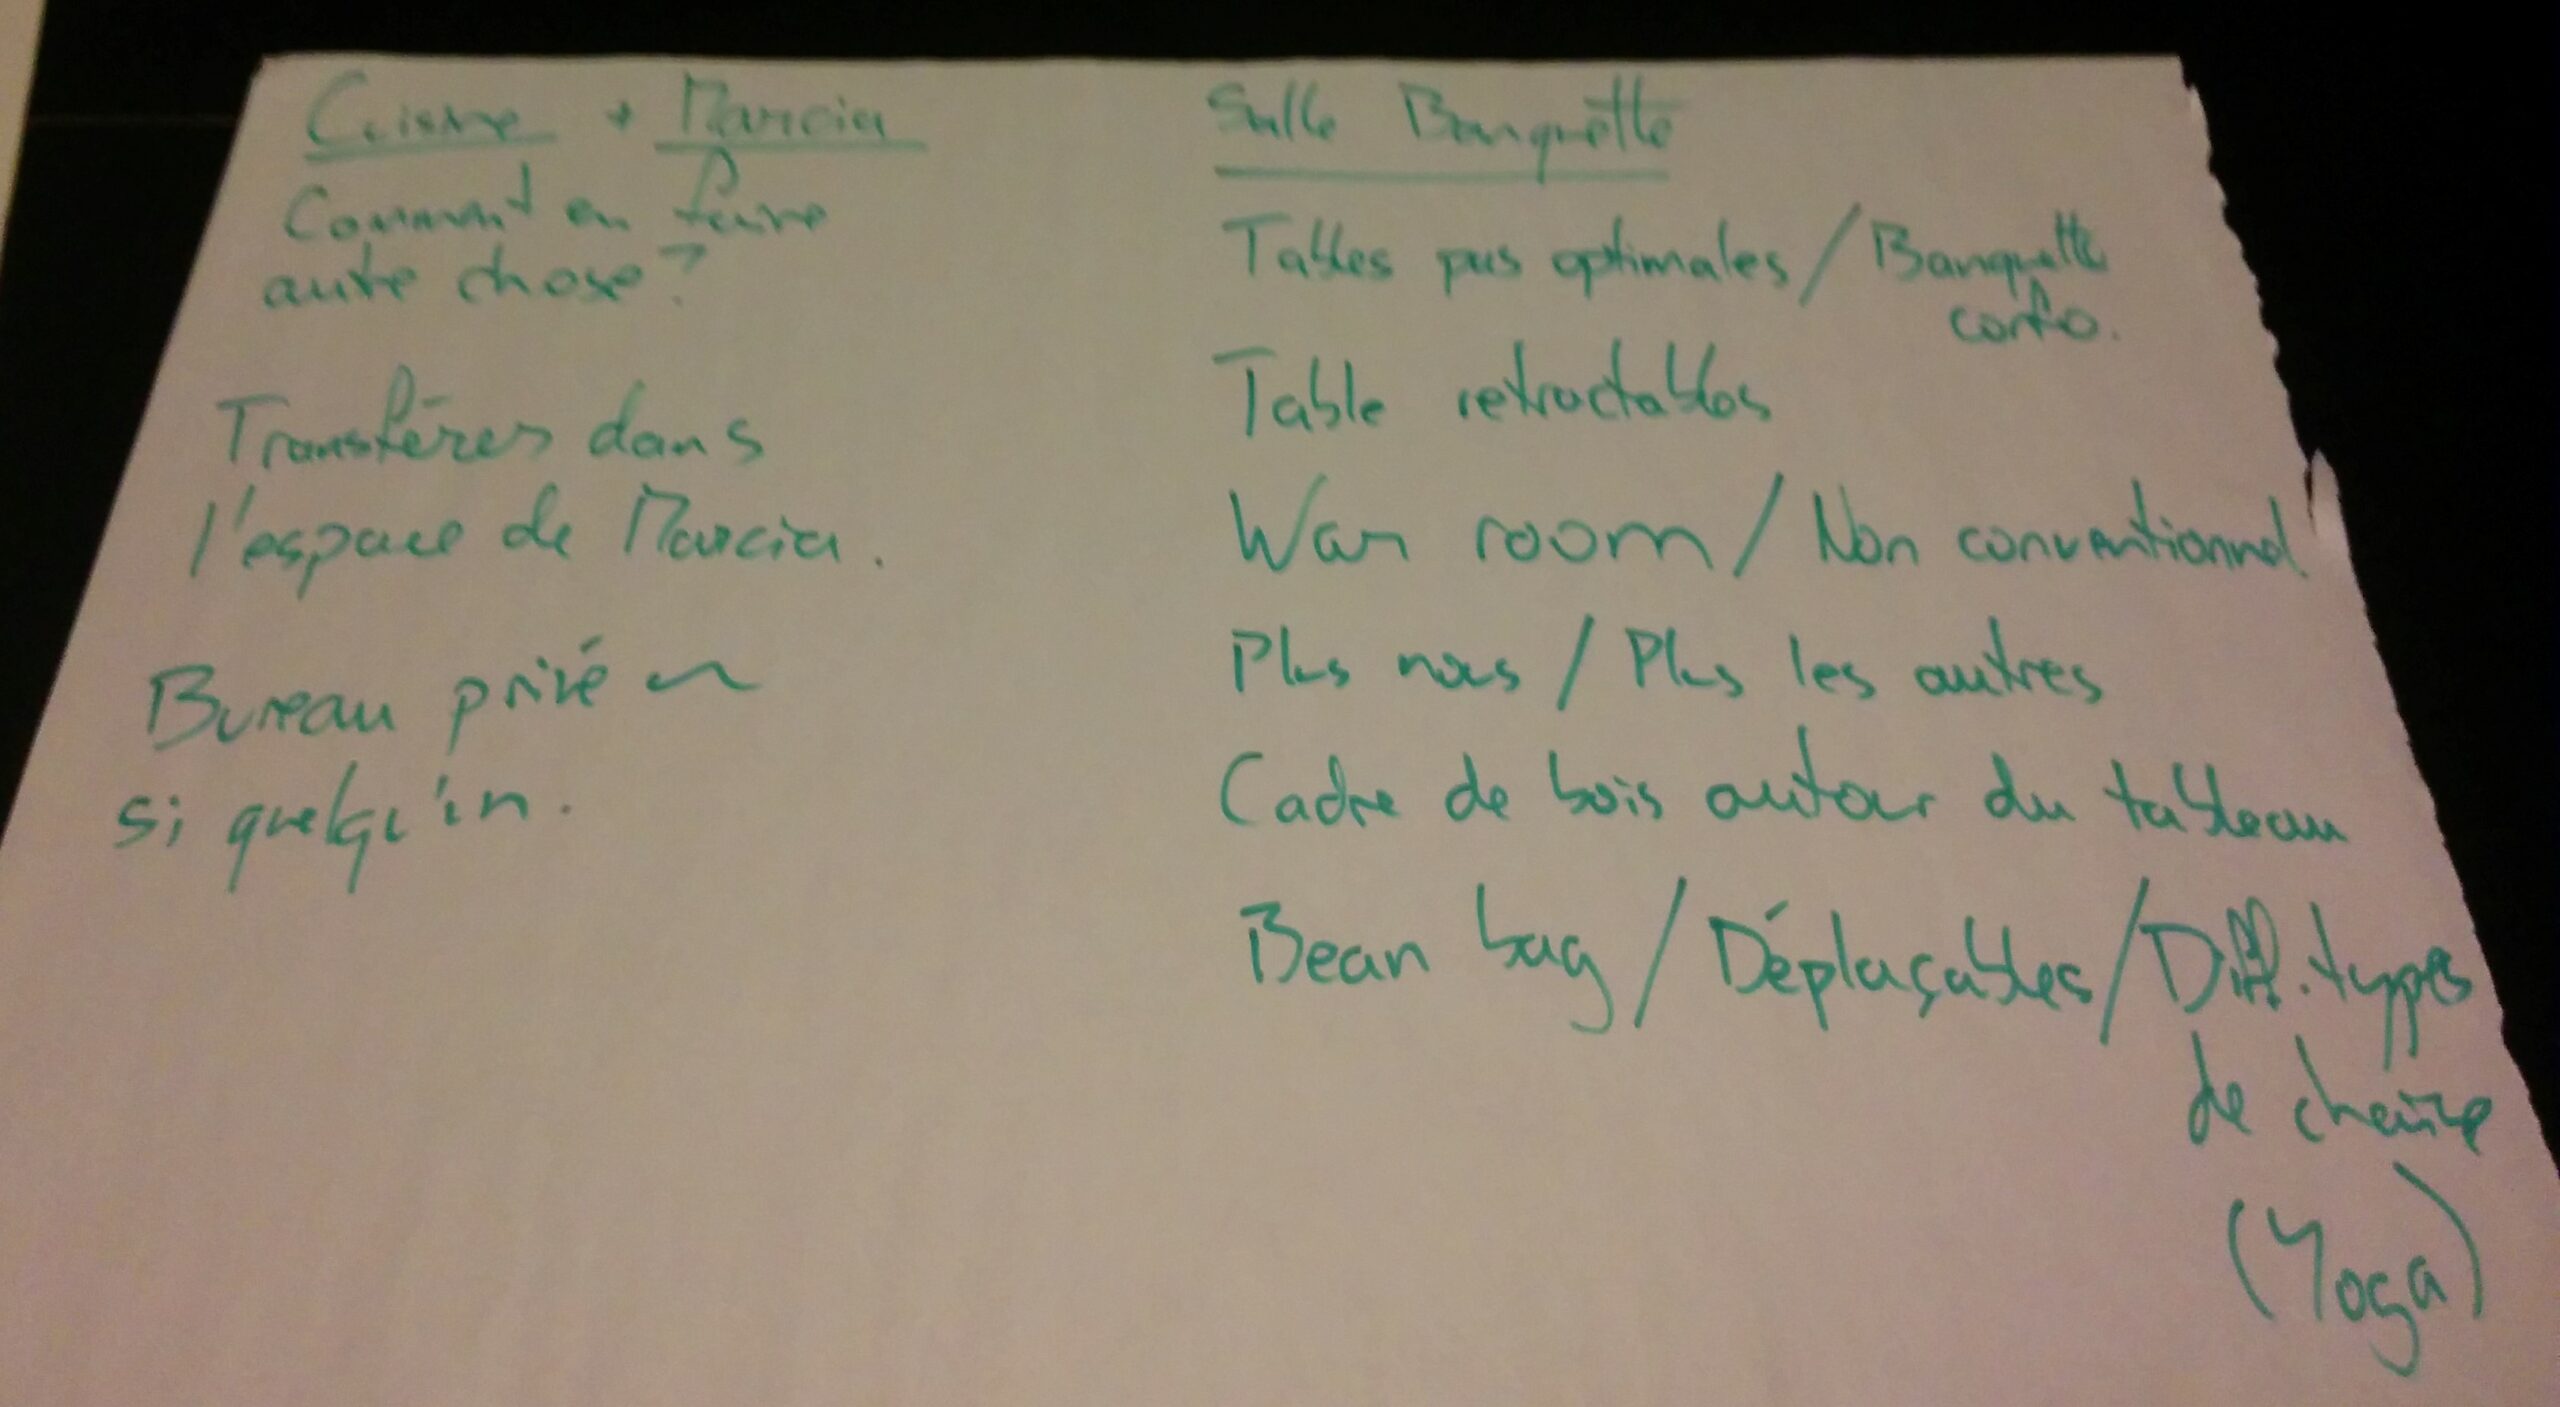 Cuisine + Marcia
Comment en faire
autre chose?
Transférer dans
l'espace de Marcia.
Bureau privé ~
si quelqu'un.
Salle Banquette
Tables pas optimales / Banquette
confo.
Table retractables
War room / Non conventionnel
Plus nous / Plus les autres
Cadre de bois autour du tableau
Bean bag / Déplaçables / Diff. types
de chaise
(Yoga)